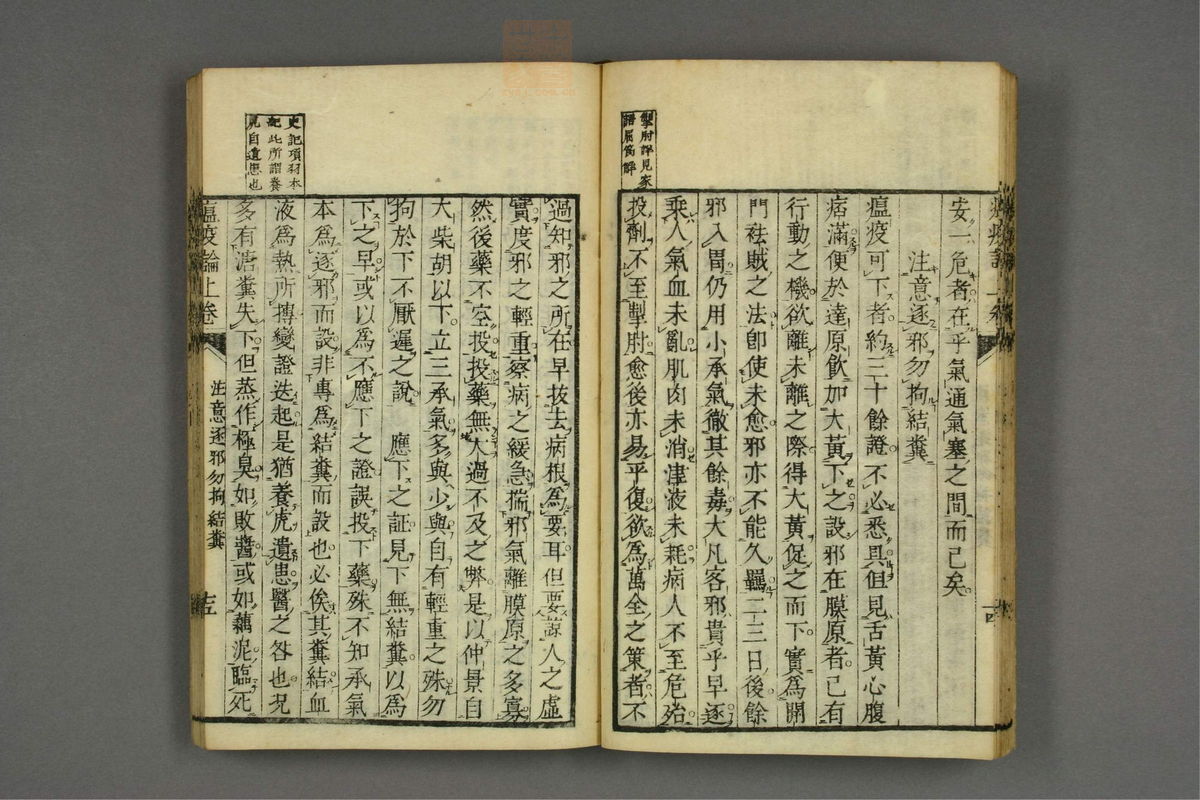 安一危者在乎氣通氣塞之間而已矣
注意逐邪勿拘結糞
瘟疫可下者約三十餘證不必悉具但見舌黃心腹
痞滿便於達原飲加大黃下之設邪在膜原者已有
行動之機欲離未離之際得大黃促之而下實為開
門祛賊之法卽使未愈邪亦不能久羈二三日後餘
邪入胃仍用小承氣徹其餘毒大凡客邪貴乎早逐
乘人氣血未亂肌肉未消津液未耗病人不至危殆
投劑不至掣肘愈後亦易乎復欲為萬全之策者不
掣肘詳見家
十四
過知邪之所在早拔去病根為要耳但要諒人之虛
實度邪之輕重察病之緩急揣邪氣離膜原之多寡
然後藥不空投投藥無太過不及之弊是以仲景自
大柴胡以下立三承氣多與少與自有輕重之殊勿
拘於下不厭遲之說 應下之証見下無結糞以為
下之早或以為不應下之證誤投下藥殊不知承氣
本為逐邪而設非專為結糞而設也必俟其糞結血
液為熱所搏變證迭起是猶養虎遺患醫之咎也況
多有溏糞失下但蒸作極臭如敗醬或如藕泥臨死
史記項羽本
紀此所謂養
虎自遺患也
瘟疫論上卷
注意逐邪勿拘結糞
十五